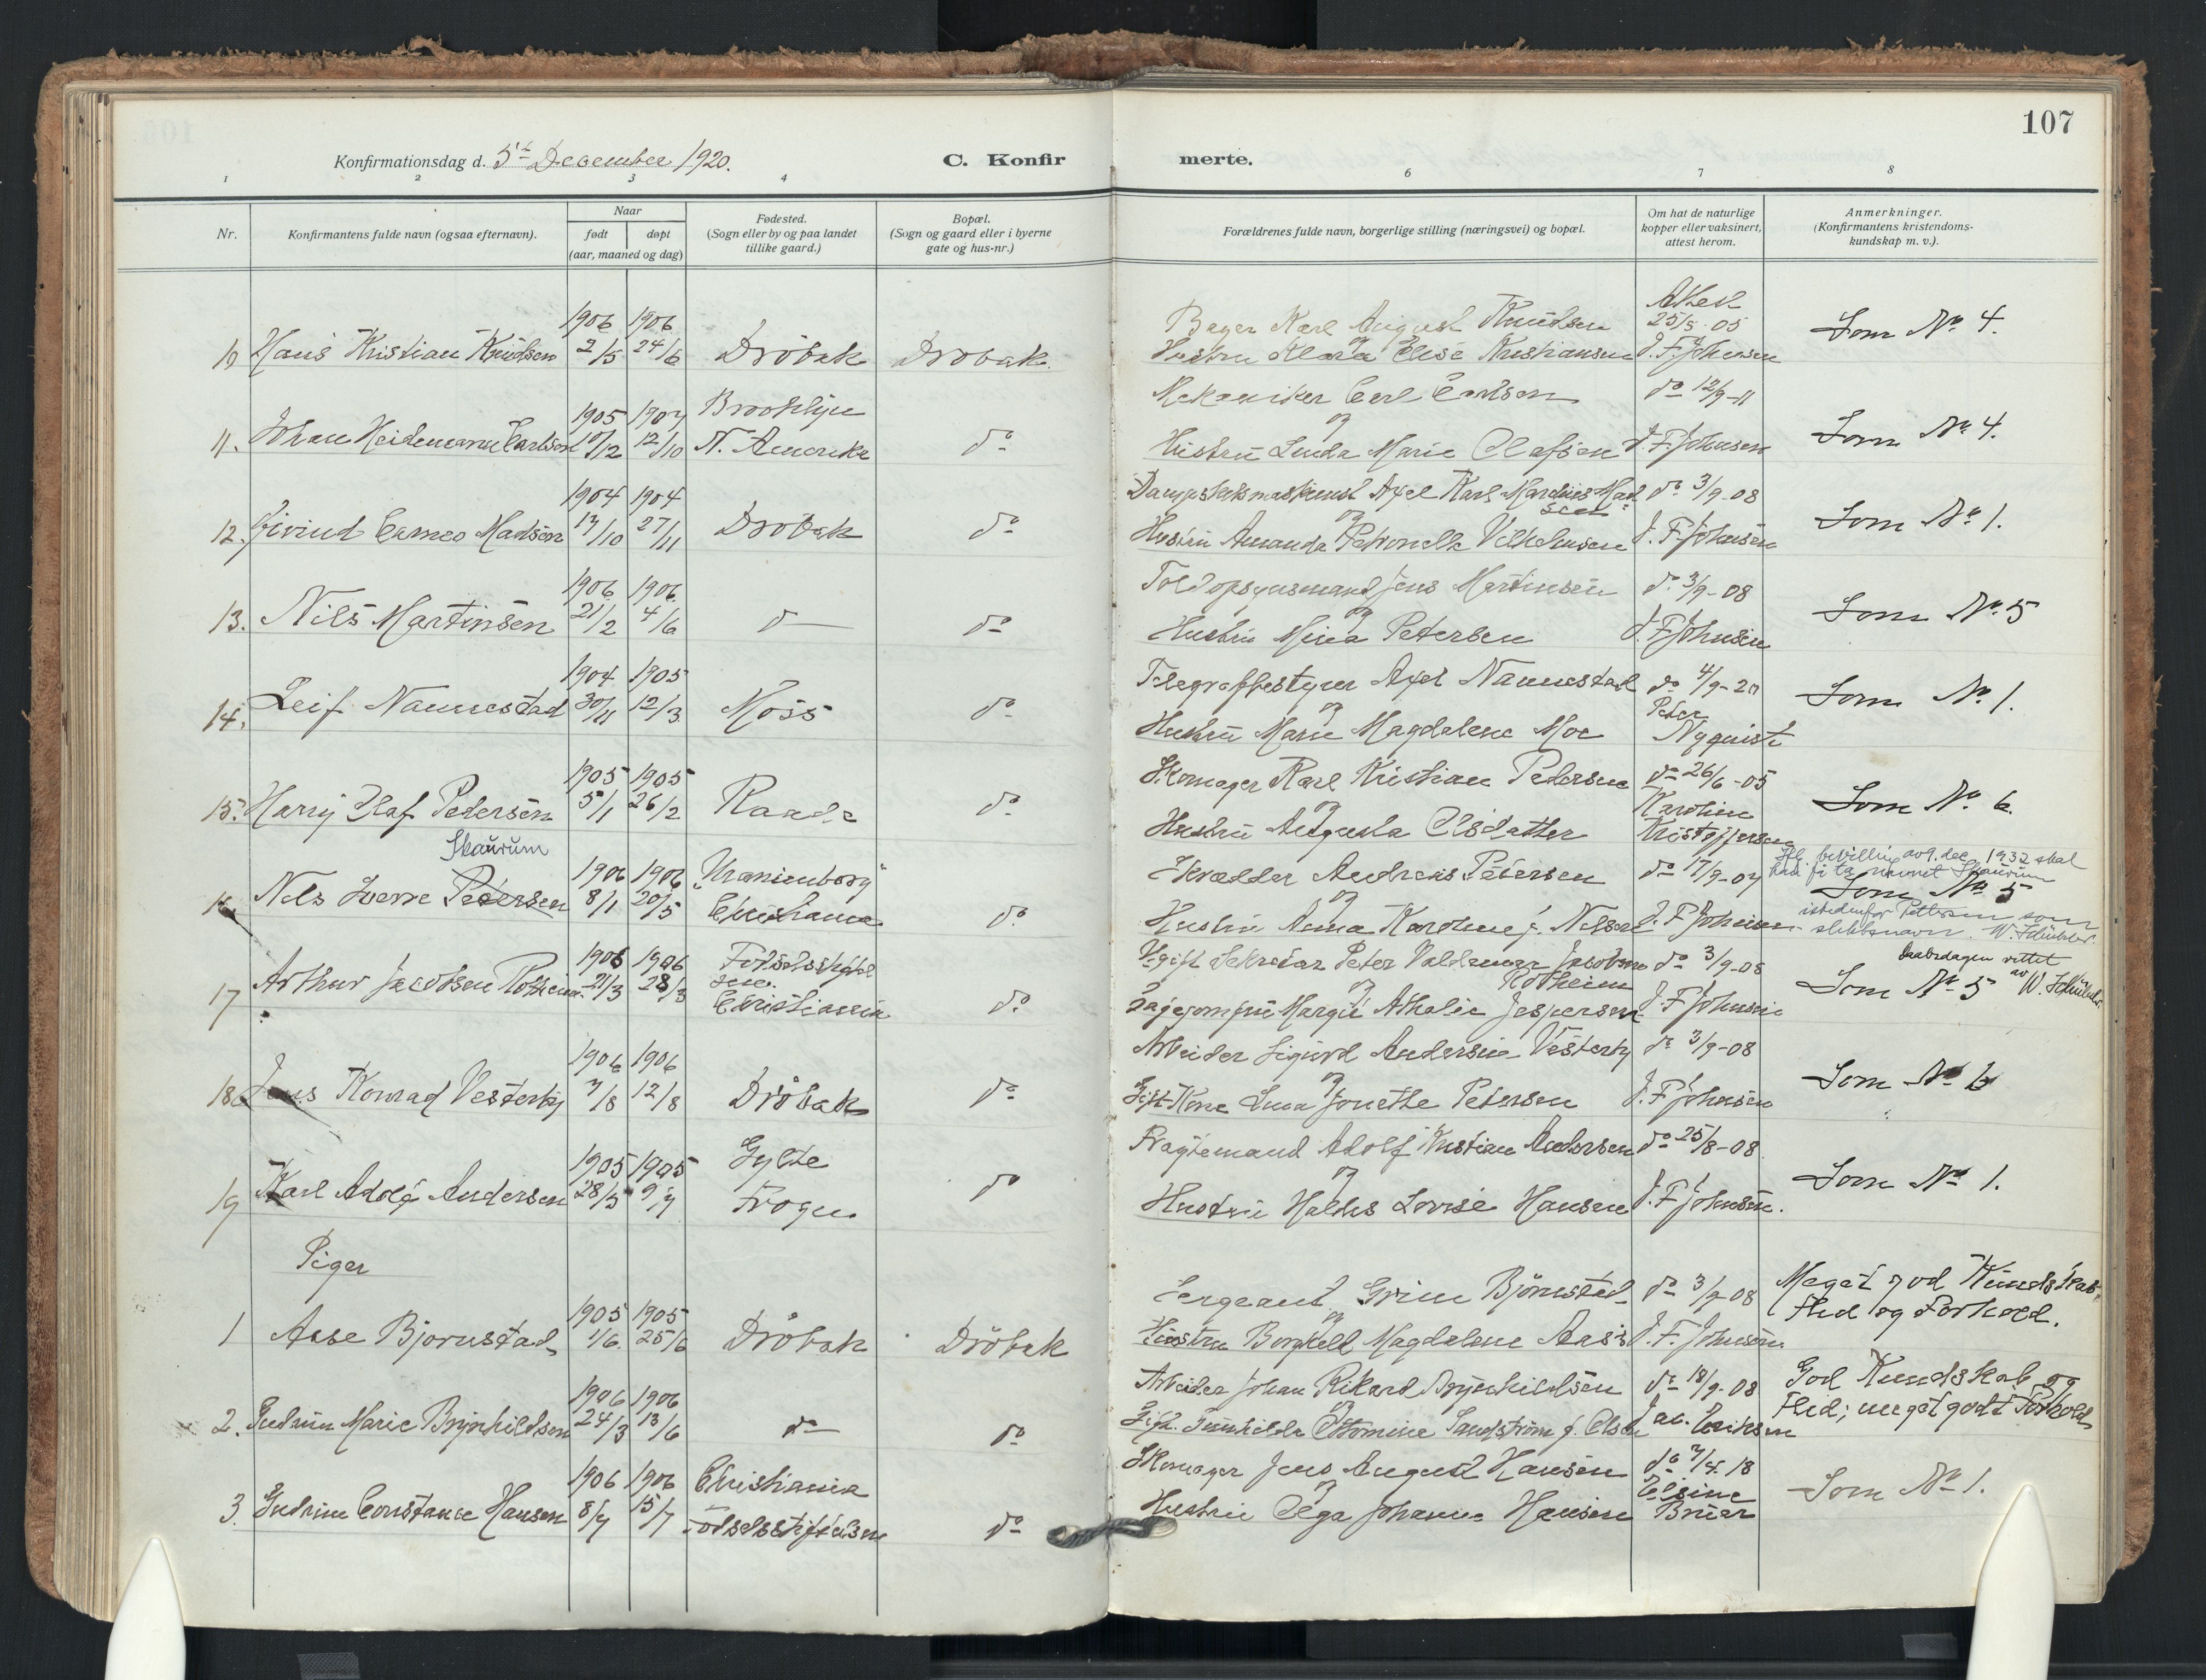 107
Konfirmationsdag d. 5te December 1920.
C. Konfir
merte.
1 2 3 4 6 7 8
Nr.
Konfirmantens fulde navn (ogsaa efternavn).
Naar
født
døpt
(aar, maaned og dag)
Fødested.
(Sogn eller by og paa landet
tillike gaard.)
Bopæl.
(Sogn og gaard eller i byerne
gate og hus-nr.)
Forældrenes fulde navn, borgerlige stilling (næringsvei) og bopæl.
Om hat de naturlige
kopper eller vaksinert,
attest herom.
Anmerkninger.
(Konfirmantens kristendoms-
kundskap m. v.).
1906 1906 Bager Karl August Knudsen Attest 25/8-05
10 Hans Kristian Knudsen 2/5 24/6 Drøbak Drøbak og Hustru Klara Elise Kristiansen J. F. Johnsen Som No 4.
1905 1907 Brooklyn Mekaniker Carl Carlson do 12/9-11
11. Johan Heidemann Carlson 10/12 12/10 N. Amerika do og Hustru Linda Marie Olafsen J. F. Johnsen Som No 4.
1904 1904 Dampskibsmaskinist Axel Karl Marelius Madsen do 3/9-08
12. Eivind Cameo Madsen 17/10 27/11 Drøbak do og Hustru Amanda Petronelle Vilhelmsen J. F. Johnsen Som No 1.
1906 1906 Toldopsynsmand Jens Martinsen do 3/9-08
13. Nils Martinsen 21/2 4/6 do do og Hustru Mina Petersen J. F. Johnsen Som No 5
1904 1905 Telegrafbestyrer Axel Nannestad do 4/9-20
14. Leif Nannestad 30/11 12/3 Moss do og Hustru Marie Magdalene Moe Peter Nyquist Som No 1.
1905 1905 Skomager Karl Kristian Pedersen do 26/6-05
15. Harry Olaf Pedersen 5/1 26/2 Raade do og Hustru Augusta Olsdatter Karoline Kristoffersen Som No 6.
Skaurum
1906 1906 "Uranienborg" Skrædder Andreas Petersen do 17/9-07
16. Nils Sverre Petersen 8/1 20/5 Christiania do og Hustru Anna Karoline f. Nilsen J. F. Johnsen Som No 5
Kgl. bevilling av 9. dec. 1932 skal
han få ta navnet Skaurum
istedenfor Pettersen som
slektsnavn. W. Schübeler.
1906 1906 Fødselsstiftelsen Ugift Sekretær Peter Valdemar Jacobsen Rotheim do 3/9-08
17 Arthur Jacobsen Rotheim 21/3 28/3 Christiania do og Pigejomfru Margit Athalie Jespersen J. F. Johnsen Som No 5
Daabsdagen rettet
av W. Schübeler
1906 1906 Arbeider Sigurd Andersen Vesterby do 3/9-08
18 Jens Konrad Vesterby 7/8 12/8 Drøbak do og Gift Kone Lina Jonette Petersen J. F. Johnsen Som No 6
1905 1905 Gylte Fragtemand Adolf Kristian Andersen do 25/8-08
19 Karl Adolf Andersen 28/5 9/7 Frogn do og Hustru Haldis Lovise Hansen J. F. Johnsen. Som No 1.
Piger
1905 1905 Sergeant Grim Bjørnstad do 3/9-08 Meget god Kundskab,
1 Aase Bjørnstad 1/6. 25/6 Drøbak Drøbak og Hustru Borghild Magdalene Aas J. F. Johnsen Flid og Forhold.
1906 1906 Arbeider Johan Rikard Brynhildsen do 18/9-08 God Kundskab og
2. Gudrun Marie Brynhildsen 24/3 13/6 do do og Gift. Gunhilda Ottomine Sandstrøm f. Olsen Jac. Eriksen Flid; meget godt Forhold
1906 1906 Christiania Skomager Jens August Hansen do 7/4.18
3. Gudrun Constance Hansen 8/7 15/7 Fødselsstiftelsen do og Hustru Olga Johanne Hansen Elsine Bruer Som No 1.